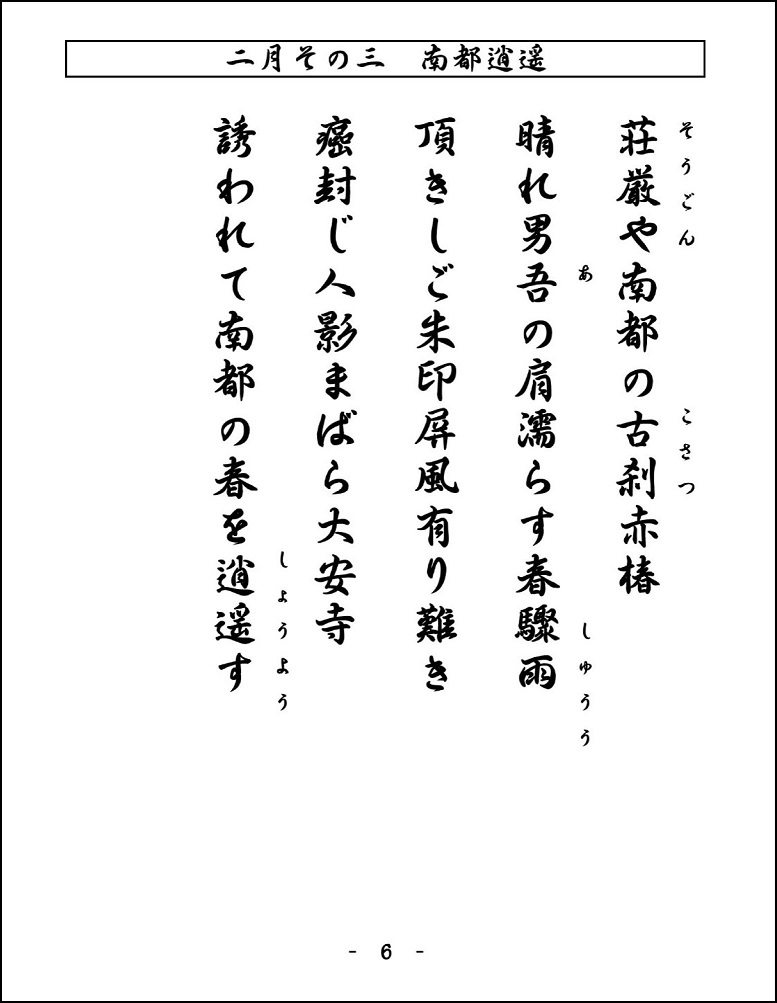 二月その三　南都逍遥
荘厳や南都の古刹赤椿
そうごん
こさつ
晴れ男吾の肩濡らす春驟雨
あ
しゅうう
頂きしご朱印屏風有り難き
癌封じ人影まばら大安寺
誘われて南都の春を逍遥す
しょうよう
- 6 -